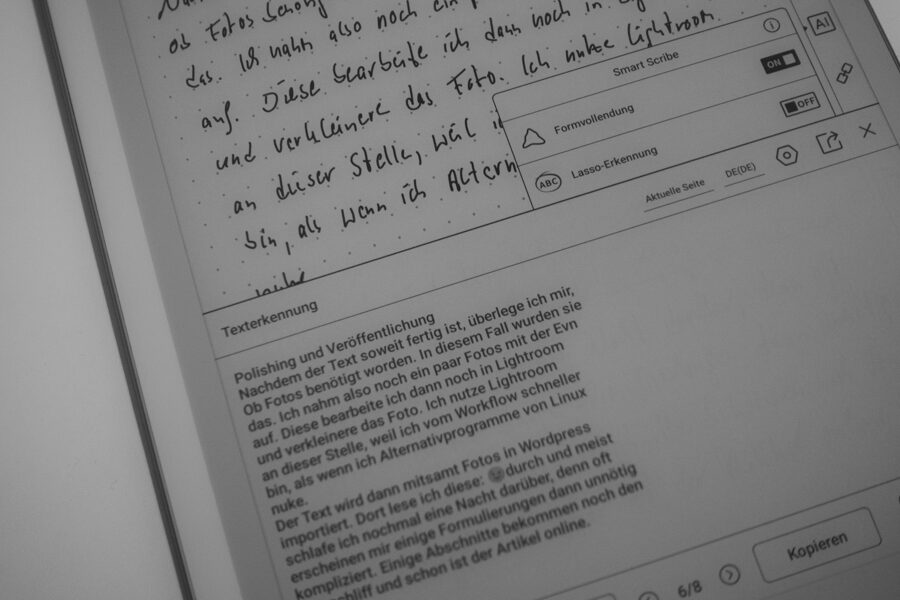 ob Fotos
das. Ich nahm also noch ein
auf. Diese bearbeite ich dann noch in
und verkleinere das Foto. Ich nutze Lightroom
an dieser Stelle, weil
bin, als wenn ich Altern
Smart Scribe
ON
Formvollendung
OFF
ABC Lasso-Erkennung
AI
Aktuelle Seite DE(DE)
Texterkennung
Polishing und Veröffentlichung
Nachdem der Text soweit fertig ist, überlege ich mir,
Ob Fotos benötigt worden. In diesem Fall wurden sie
das. Ich nahm also noch ein paar Fotos mit der Evn
auf. Diese bearbeite ich dann noch in Lightroom
und verkleinere das Foto. Ich nutze Lightroom
an dieser Stelle, weil ich vom Workflow schneller
bin, als wenn ich Alternativprogramme von Linux
nuke.
Der Text wird dann mitsamt Fotos in Wordpress
importiert. Dort lese ich diese: durch und meist
schlafe ich nochmal eine Nacht darüber, denn oft
erscheinen mir einige Formulierungen dann unnötig
kompliziert. Einige Abschnitte bekommen noch den
chliff und schon ist der Artikel online.
6/8
Kopieren